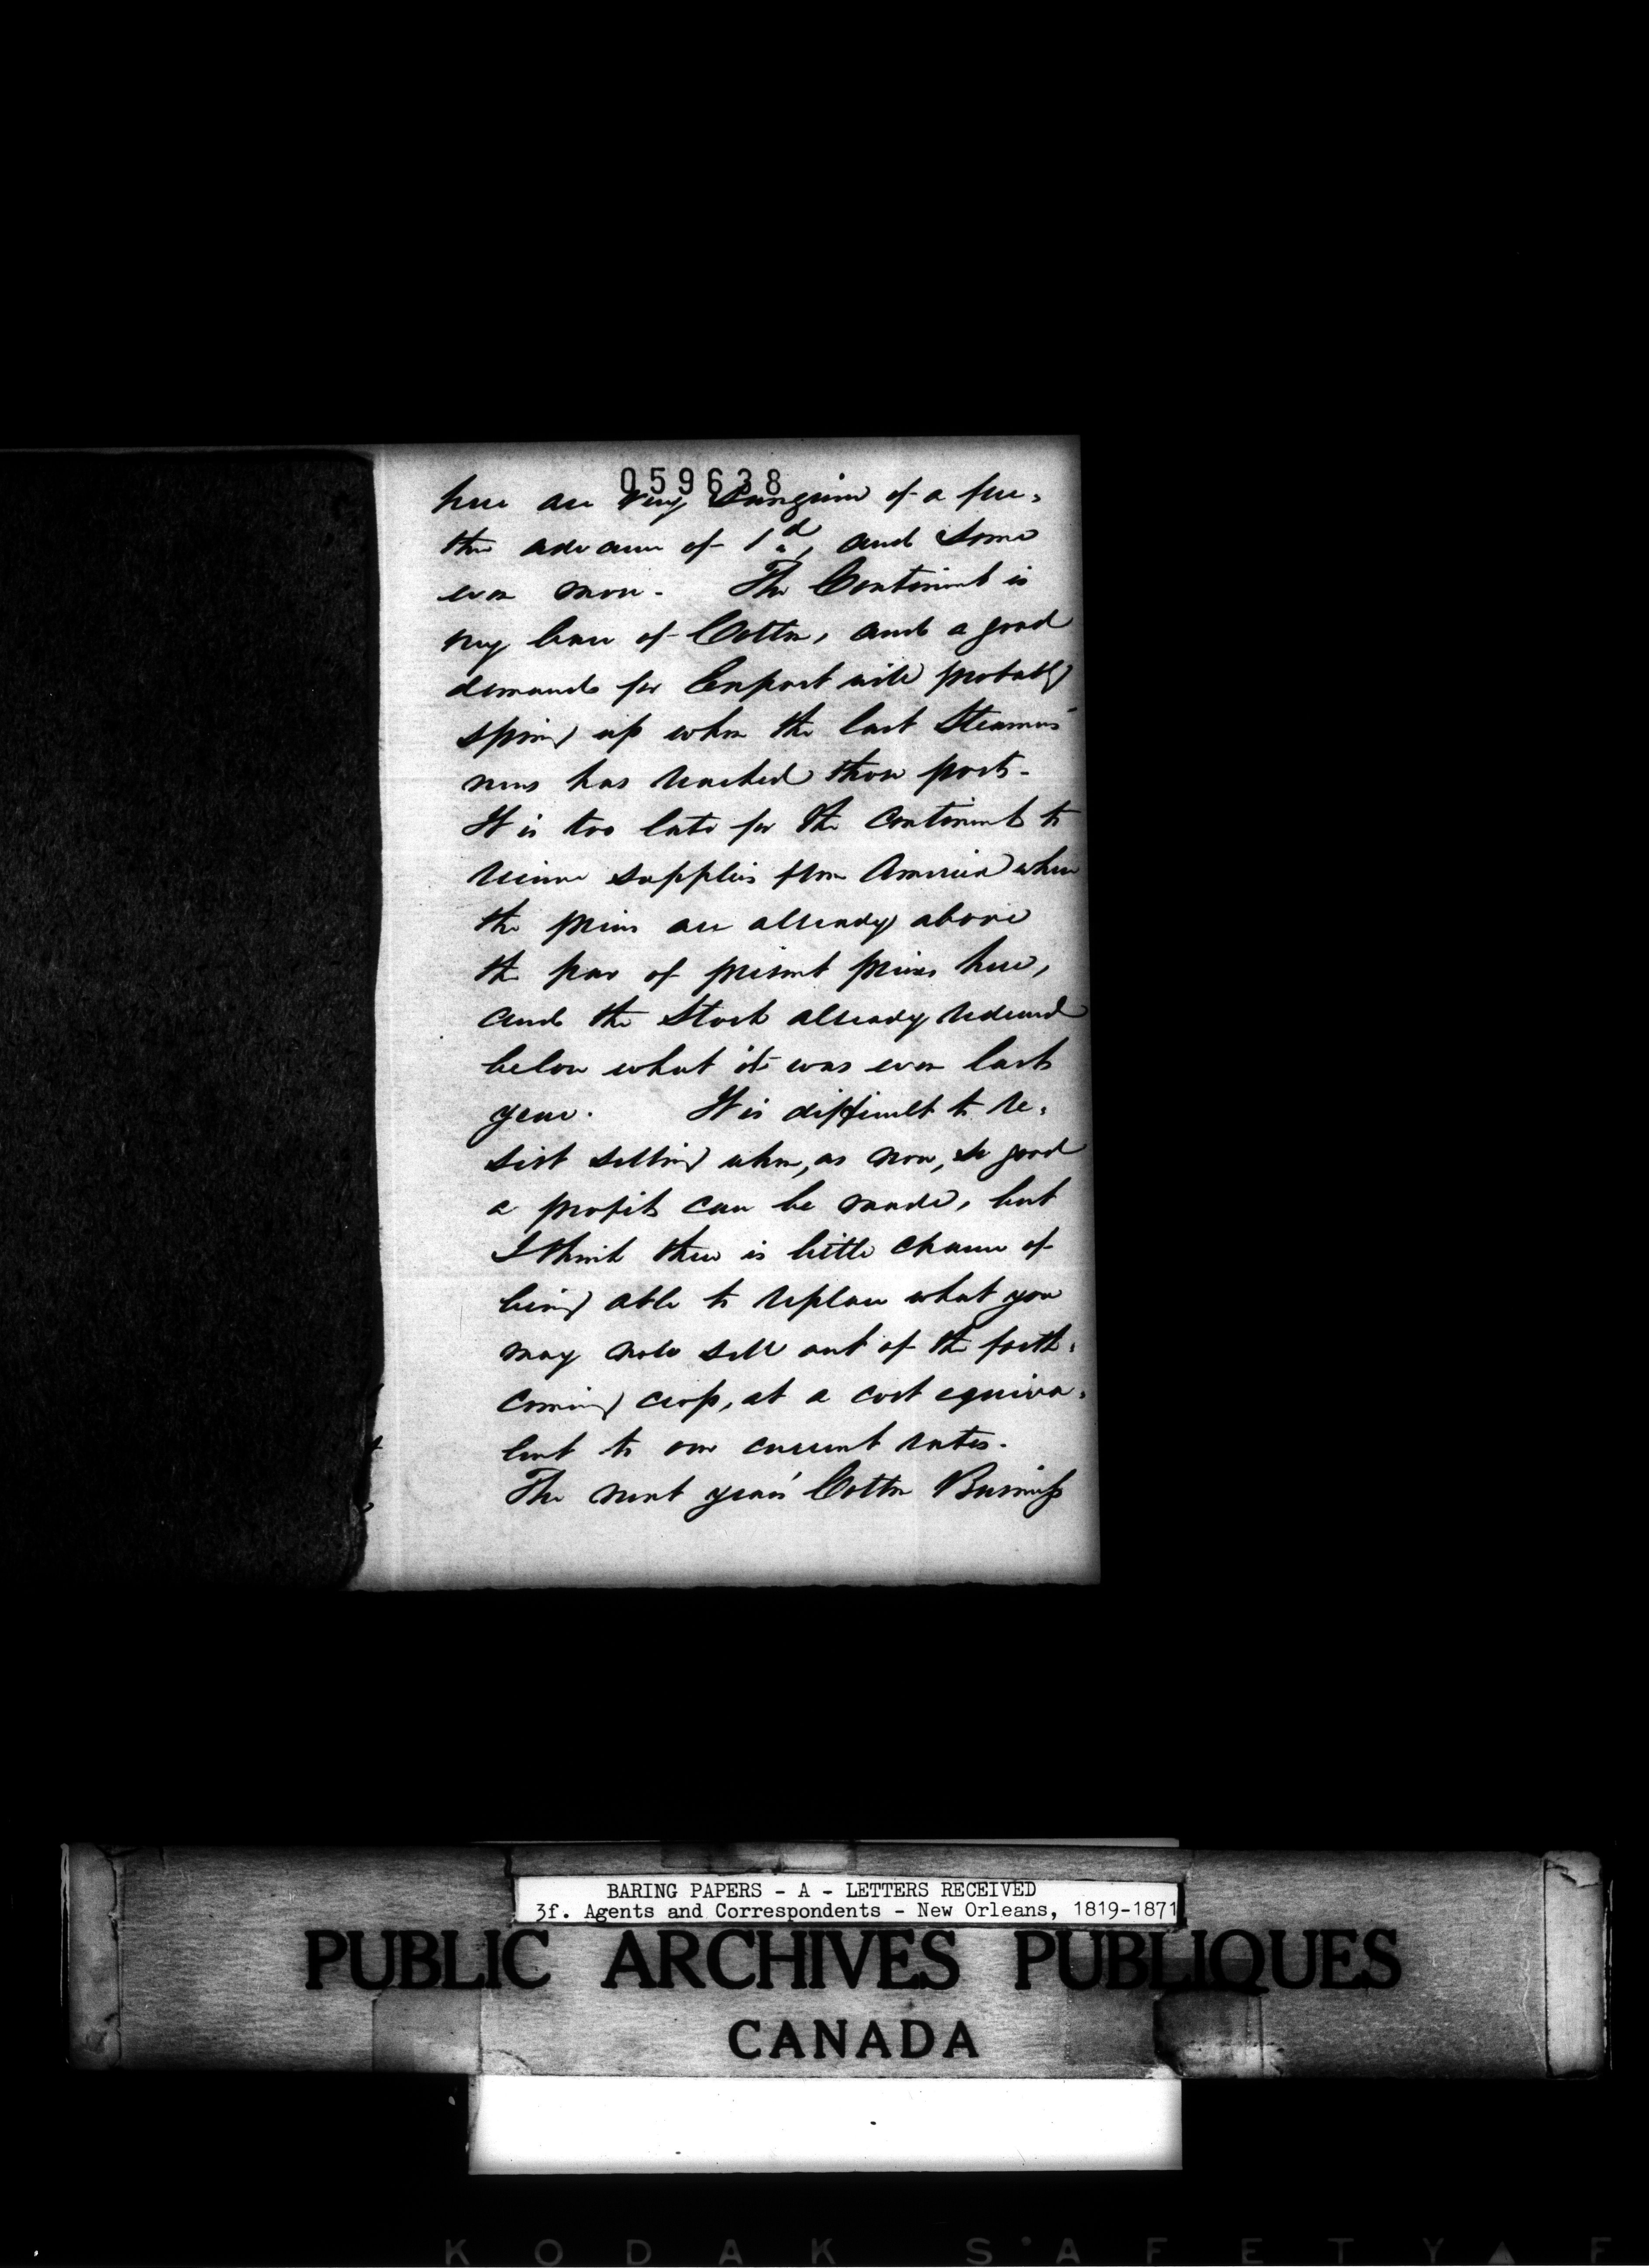 059638
here are very Sanguine of a fur=
ther advance of 1d, and some
even more. The Continent is
very bare of Cotton, and a good
demand for Export will probably
spring up when the last Steamers'
news has reached those ports.
It is too late for the Continent to
receive supplies from America where
the prices are already above
the par of present prices here,
and the Stock already reduced
below what it was even last
year. It is difficult to re=
sist selling when, as now, so good
a profit can be made, but
I think there is little chance of
being able to replace what you
may now sell out of the forth=
coming crop, at a cost equiva=
lent to our current rates.
The next year's Cotton Business
BARING PAPERS - A - LETTERS RECEIVED
3f. Agents and Correspondents - New Orleans, 1819-1871
PUBLIC ARCHIVES PUBLIQUES
CANADA
KODAK SAFETY F